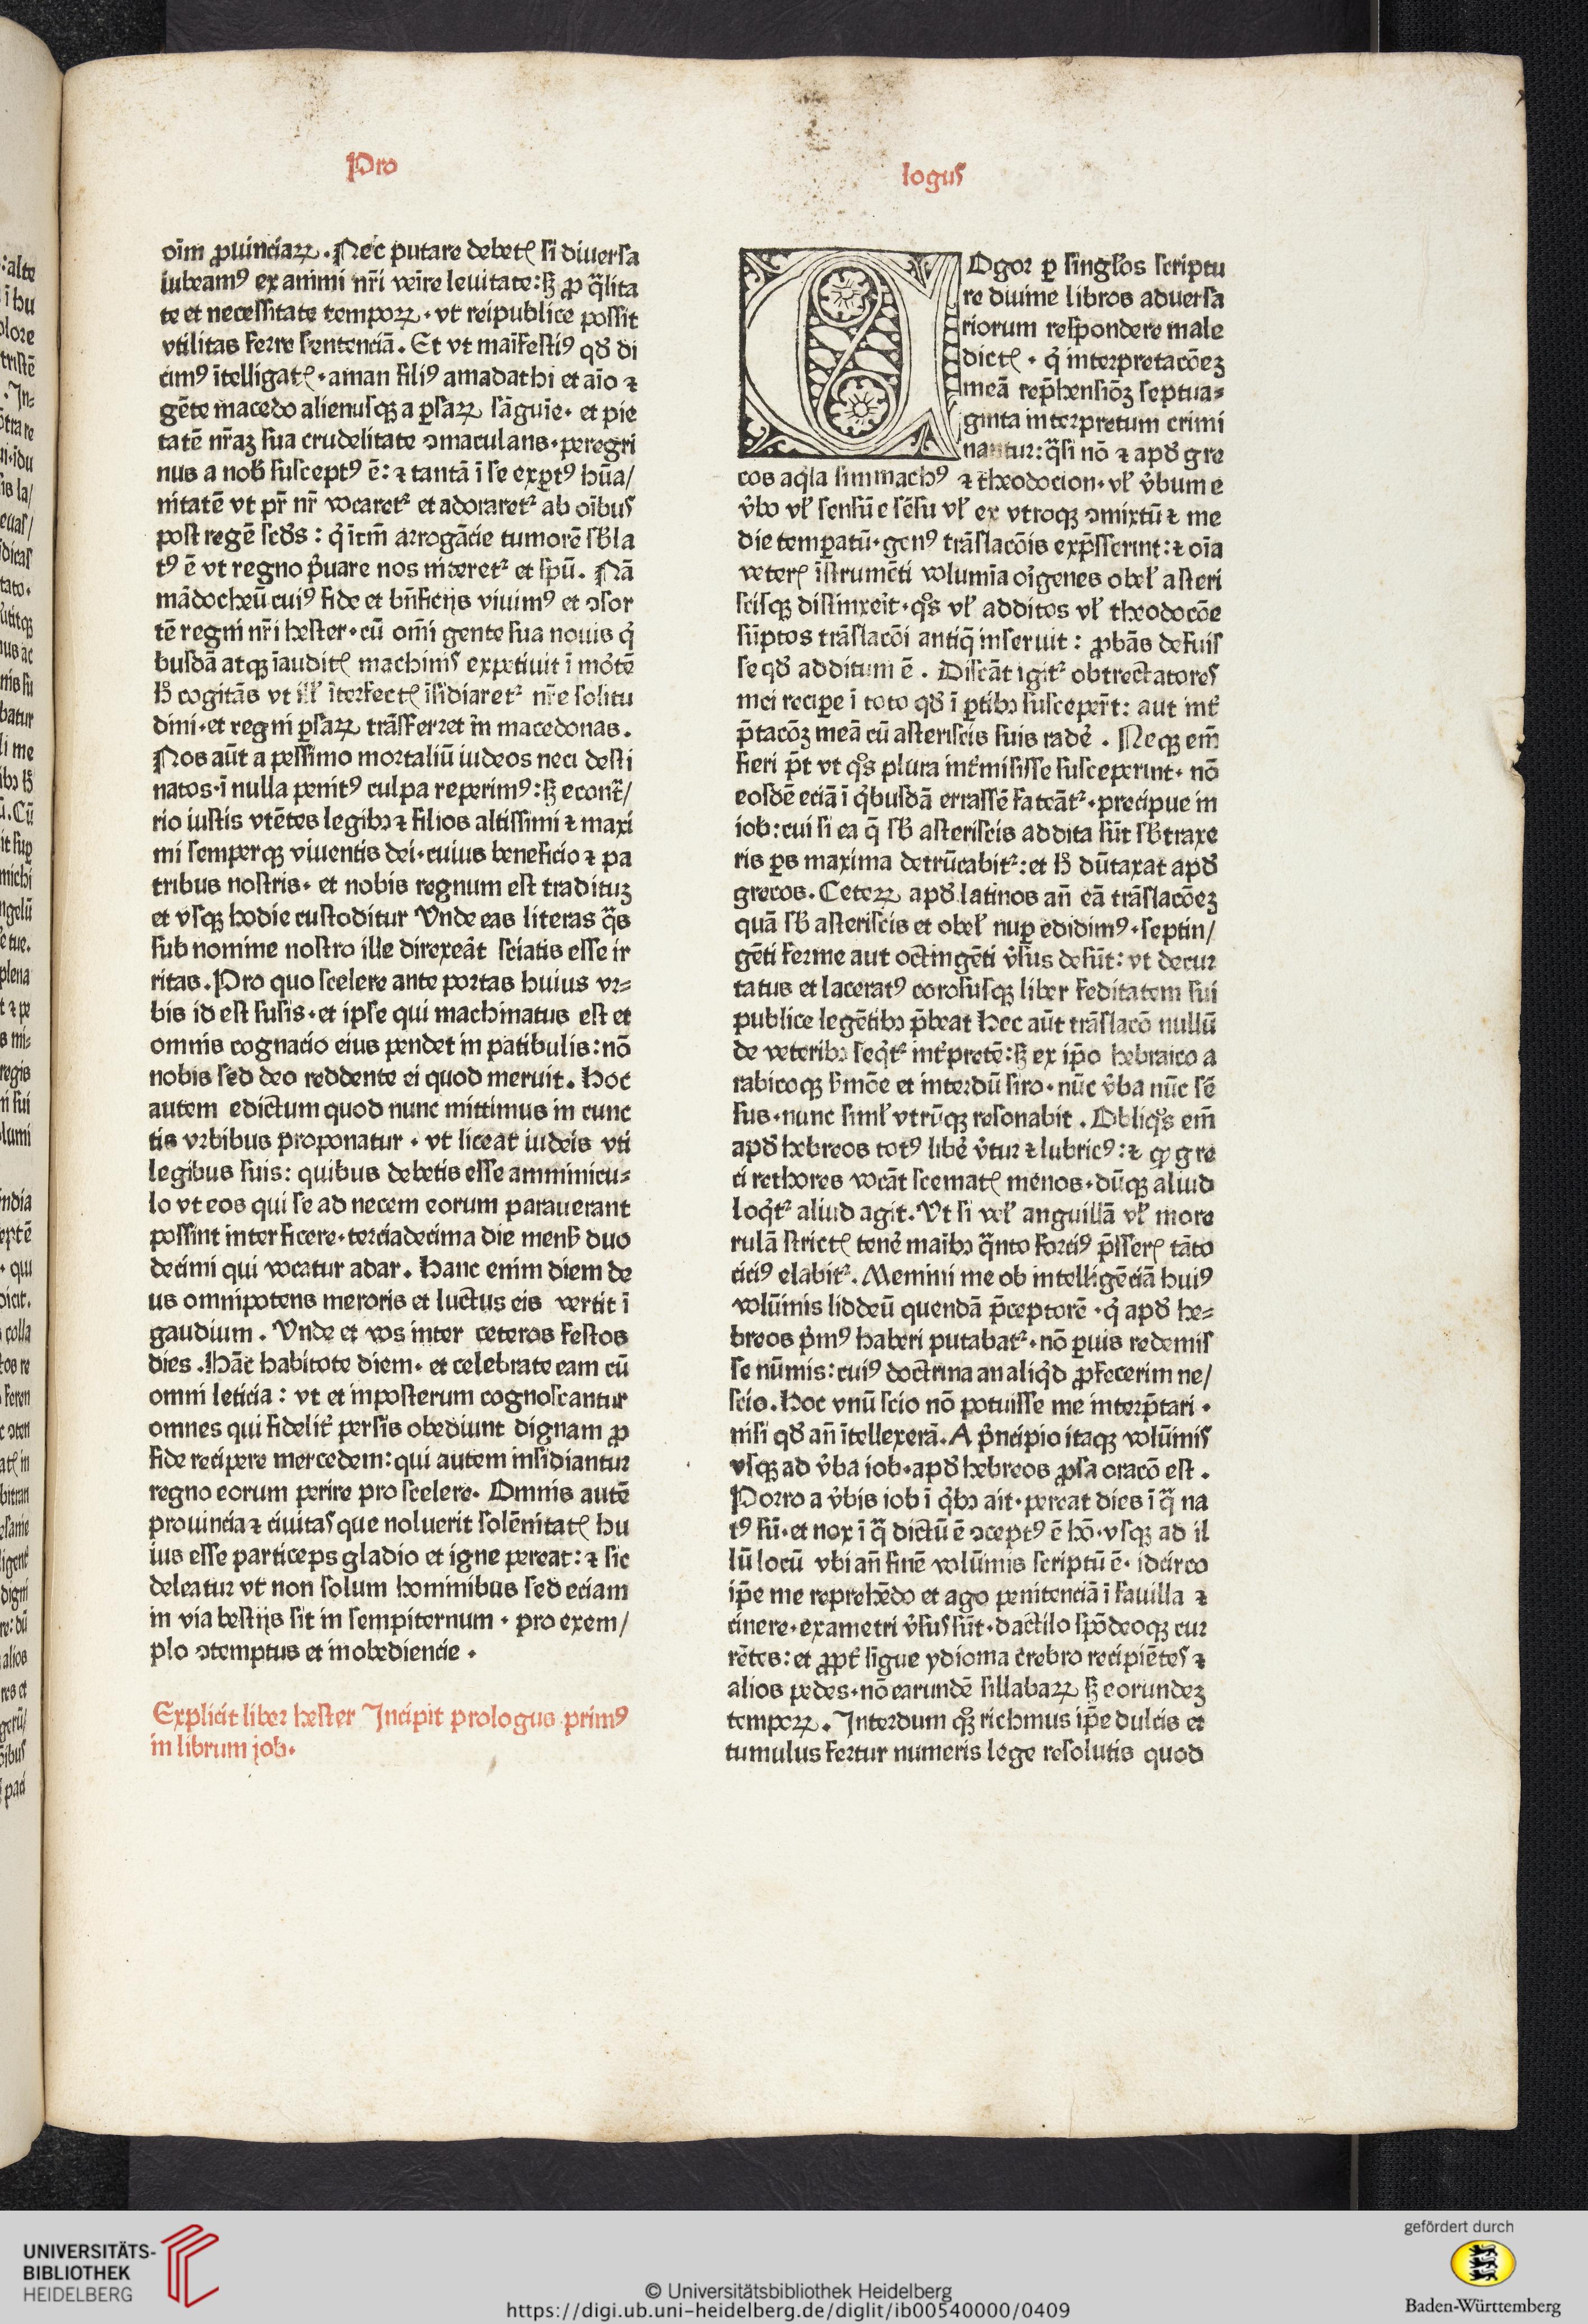 Pro
logus
oīm ꝓuinciaꝝ. Nec putare debetꝭ si diuersa
iubeamꝰ ex animi nr̄i veīre leuitate: ꝫ ꝓ q̄lita
te et necessitate tempoꝝ · vt reipublice possit
vtilitas ferre sentenciā. Et vt maīfestiꝰ qď di
cimꝰ ītelligatꝭ · aman filiꝰ amadathi et aīo ⁊
gēte macedo alienusqꝫ a ꝑsaꝝ sāguīe · et pie
tatē nr̄aꝫ sua crudelitate ꝯmaculans · peregri
nus a nob̄ susceptꝰ ē: ⁊ tantā ī se exꝑtꝰ hūa/
nitatē vt pr̄ nr̄ vocaretᷣ et adoraretᷣ ab oībus
post regē scďs: q̇ īem̄ arrogācie tumorē sb̄la
tꝰ ē vt regno ṗuare nos niteretᷣ et spū. Nā
mādocheū cuiꝰ fide et bn̄ficijs viuimꝰ et ꝯsor
tē regni nr̄i hester · cū om̄i gente sua nouis q̇
busdā atqꝫ īauditꝭ machinis expetiuit ī mo᷒tē
h̄ cogitās vt ill̵ īterfectꝭ īsidiaretᷣ nr̄e solitu
dini · et regni ꝑsaꝝ trāsferret īn macedonas.
Nos aūt a pessimo mortaliū iudeos neci desti
natos · ī nulla penitꝰ culpa reperimꝰ: ꝫ econt̄/
rio iustis vtētes legibꝫ ⁊ filios altissimi ⁊ maxi
mi semperqꝫ viuentis dei · cuius beneficio ⁊ pa
tribus nostris · et nobis regnum est tradituꝫ
et vsqꝫ hodie custoditur Vnde eas literas q̄s
sub nomine nostro ille direxeāt sciatis esse ir
ritas. Pro quo scelere ante portas huius vr⸗
bis id est susis · et ipse qui machinatus est et
omnis cognacio eius pendet in patibulis: nō
nobis sed deo reddente ei quod meruit. Hoc
autem edictum quod nunc mittimus in cunc
tis vrbibus proponatur · vt liceat iudeis vti
legibus suis: quibus debetis esse amminicu⸗
lo vt eos qui se ad necem eorum parauerant
possint interficere · terciadecima die mens̄ duo
decimi qui vocatur adar. Hanc enim diem de
us omnipotens meroris et luctus eis vertit ī
gaudium. Vnde et vos inter ceteros festos
dies. Hāc habitote diem · et celebrate eam cū
omni leticia: vt et inposterum cognoscantur
omnes qui fidelit̓ persis obediunt dignam ꝓ
fide recipere mercedem: qui autem insidiantur
regno eorum perire pro scelere. Omnis autē
prouincia ⁊ ciuitas que noluerit solēnitatꝭ hu
ius esse particeps gladio et igne pereat: ⁊ sic
deleatur vt non solum hominibus sed eciam
in via bestijs sit in sempiternum · pro exem/
plo ꝯtemptus et inobediencie.
Explicit liber hester Incipit prologus primꝰ
in librum job.
COgor ꝑ singl̵os scriptu
re diuine libros aduersa
riorum respondere male
dictꝭ · q̇ interpretacōeꝫ
meā rep̄hensiōꝫ septua⸗
ginta interpretum crimi
nantur: q̄si nō ⁊ apď gre
cos aq̇la simmachꝰ ⁊ theodocion · vl̵ v̓bum e
v̓bo vl̵ sensū e sēsu vl̵ ex vtroqꝫ ꝯmixtū ⁊ me
die temꝑatū · genꝰ trāslacōis exp̄sserint: ⁊ oīa
veterꝭ īstrumēti volumīa oꝛ̓igenes obel̵ asteri
scisqꝫ distinxeīt · q̊s vl̵ additos vl̵ theodocōe
sūptos trāslacōi antiq̄ inseruit: ꝓbās defuis
se qď additum ē. Discāt igitᷣ obtrectatores
mei recipe ī toto qď ī ꝑtibꝫ susceper̄t: aut int̓
p̄tacōꝫ meā cū asteriscis suis rade̓. Neqꝫ em̄
fieri p̄t vt q̊s plura int̓misisse susceperint · nō
eosdē eciā ī q̇busdā errassē fateātᷣ · precipue in
iob: cui si ea q̄ sb̄ asteriscis addita sūt sb̄traxe
ris ꝑs maxima detrūcabitᷣ: et h̄ dūtaxat apď
grecos. Ceteꝝ apď latinos an̄ eā trāslacōeꝫ
quā sb̄ asteriscis et obel̵ nuꝑ edidimꝰ · septin/
gēti ferme aut octingēti v̓sus desūt: vt decur
tatus et laceratꝰ corosusqꝫ liber feditatem sui
publice legētibꝫ p̄beat Hec aūt trāslacō nullū
de veteribꝫ seq̇tᷣ int̓pretē: ꝫ ex ip̄o hebraico a
rabicoqꝫ s̓mōe et interdū siro · nūc v̓ba nūc sē
sus · nunc siml̵ vtrūqꝫ resonabit. Obliq̊s em̄
apď hebreos totꝰ libe̓ v̓tur ⁊ lubricꝰ: ⁊ ꝙ gre
ci rethores vocāt scematꝭ menos · dūqꝫ aliud
loq̇tᷣ aliud agit. Vt si vel̵ anguillā vl̵ more
rulā strictꝭ tene̓ maībꝫ q̄nto forciꝰ p̄sserꝭ tāto
citiꝰ elabitᷣ. Memini me ob intelligēciā huiꝰ
volūinis liddeū quendā p̄ceptorē · q̇ apď he⸗
breos p̓mꝰ haberi putabatᷣ · nō ꝑuis redemis
se nūmis: cuiꝰ doctrina an aliq̇d ꝓfecerim ne/
scio. Hoc vnū scio nō potuisse me interp̄tari ·
nisi qď an̄ ītellexerā. A p̓ncipio itaqꝫ volūinis
vsqꝫ ad v̓ba iob · apď hebreos ꝓsa oracō est.
Porro a v̓bis iob ī q̇bꝫ ait · pereat dies ī q̄ na
tꝰ sū · et nox ī q̄ dictū ē ꝯceptꝰ ē hō · vsqꝫ ad il
lū locū vbi an̄ finē volūinis scriptū ē · idcirco
ip̄e me reprehēdo et ago penitenciā ī fauilla ⁊
cinere · exametri v̓sus sūt · dactilo spōdeoqꝫ cur
rētes: et ꝓpt̓ līgue ydioma crebro recipiētes ⁊
alios pedes · nō earundē sillabaꝝ ꝫ eorundeꝫ
tempoꝝ. Interdum qꝫ̊ richmus ip̄e dulcis et
tumulus fertur numeris lege resolutis quod
UNIVERSITÄTS-
BIBLIOTHEK
HEIDELBERG
© Universitätsbibliothek Heidelberg
https://digi.ub.uni-heidelberg.de/diglit/ib00540000/0409
gefördert durch
Baden-Württemberg